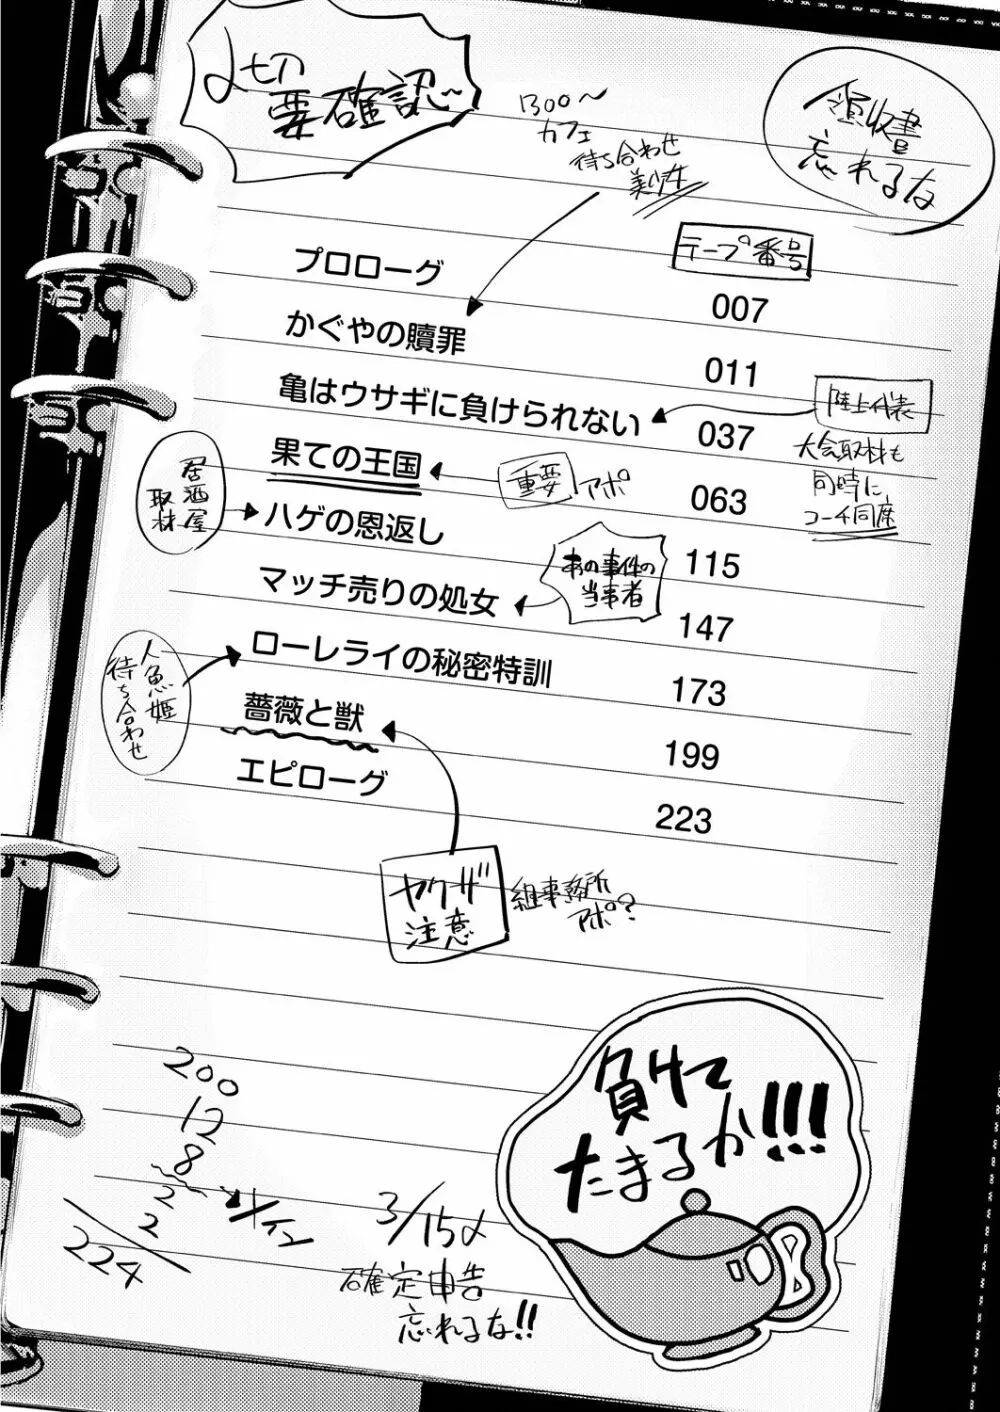 〆切
要確認
1300〜
カフェ
待ち合わせ
美少女
領収書
忘れるな
テープ番号
プロローグ 007
かぐやの贖罪 011
亀はウサギに負けられない 037
陸上代表
大会取材も
同時に、
コーチ同席
果ての王国 063
重要 アポ
ハゲの恩返し 115
居酒屋
取材
マッチ売りの処女 147
あの事件の
当事者
ローレライの秘密特訓 173
人魚姫
待ち合わせ
薔薇と獣 199
エピローグ 223
ヤクザ
注意
組事務所
アポ?
200
12
8
2
2
224
3/15〆
確定申告
忘れるな!!
負けて
たまるか!!!